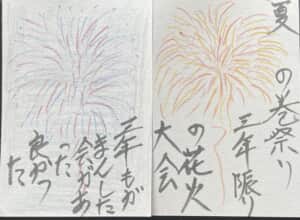 夏の巻祭り
三年振り
の花火
大会
三年もが
まんした
会があ
った
良かっ
た